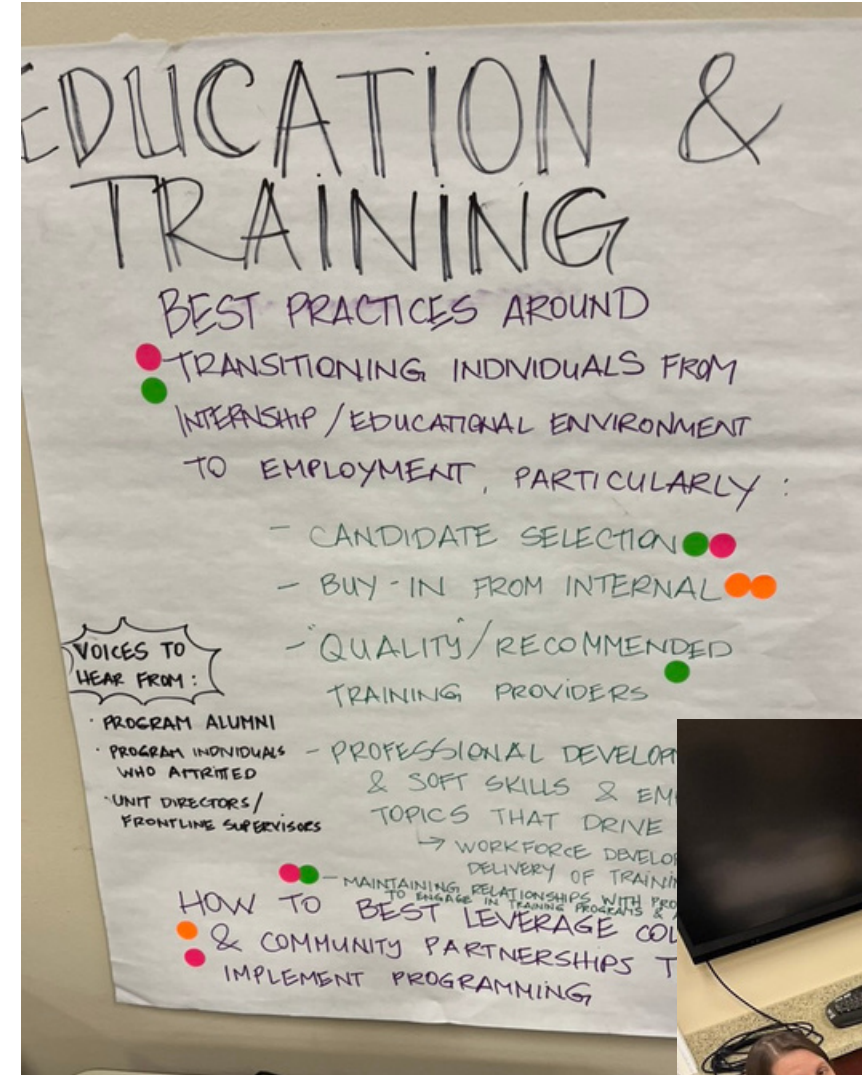 EDUCATION &
TRAINING
BEST PRACTICES AROUND
TRANSITIONING INDIVIDUALS FROM
INTERNSHIP / EDUCATIONAL ENVIRONMENT
TO EMPLOYMENT, PARTICULARLY :
- CANDIDATE SELECTION
- BUY-IN FROM INTERNAL
- "QUALITY"/RECOMMENDED
TRAINING PROVIDERS
- PROFESSIONAL
& SOFT SKILLS &
TOPICS THAT DRIVE
→ WORKFORCE
DELIVERY OF
- MAINTAINING RELATIONSHIPS WITH
TO ENGAGE IN TRAINING PROGRAMS &
VOICES TO
HEAR FROM :
· PROGRAM ALUMNI
· PROGRAM INDIVIDUALS
WHO ATTRITTED
· UNIT DIRECTORS/
FRONTLINE SUPERVISORS
HOW TO BEST LEVERAGE
& COMMUNITY PARTNERSHIPS
IMPLEMENT PROGRAMMING